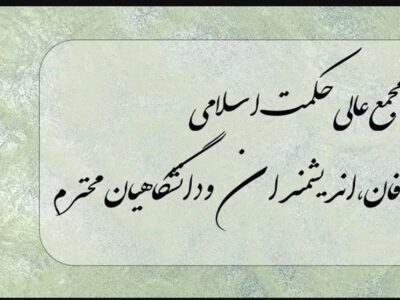 مجمع عالی حکمت اسلامی
فان، اندیشمندان و دانشگاهیان محترم